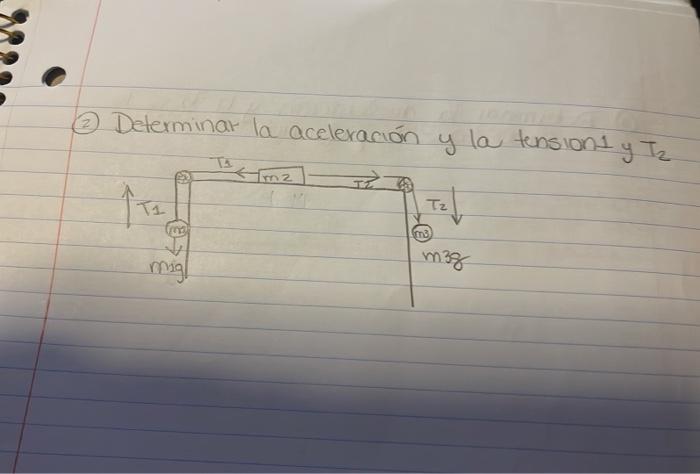 ② Determinar la aceleración y la tension1 y T2
T1 m2 T2
T1 T2
m1 m3
m1g m3g